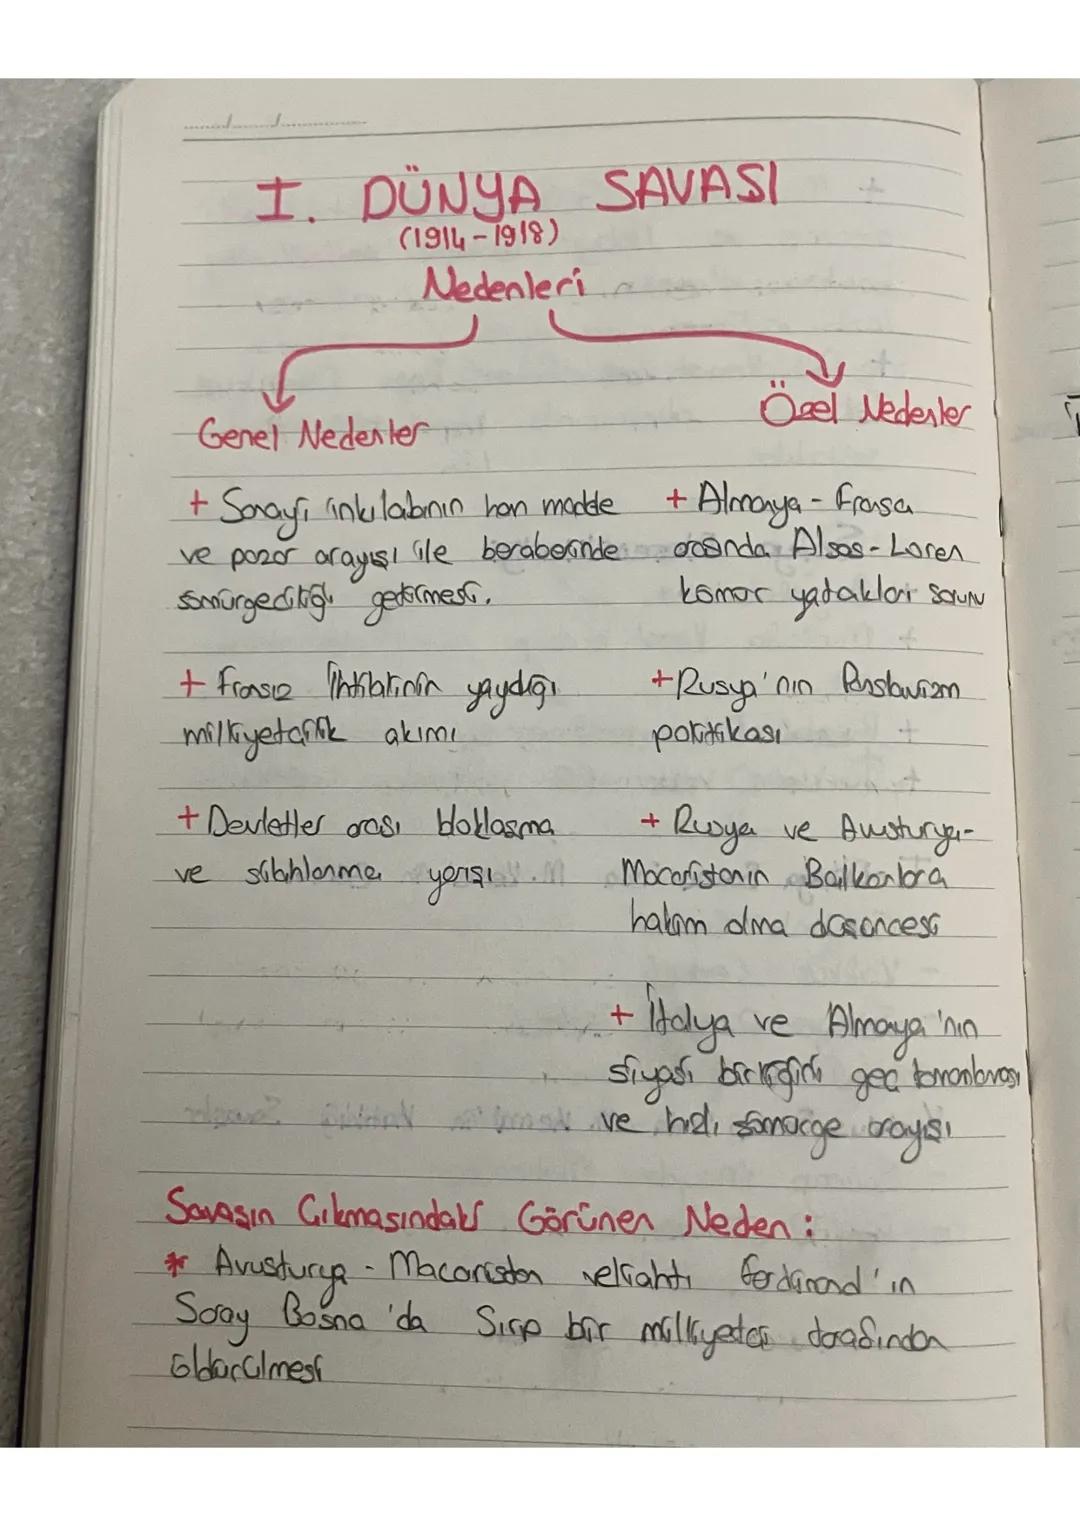 I. DÜNYA SAVASI
(1914-1918)
Nedenleri
Genel Nedenler
+ Sanayi inkılabının ham madde
ve pazar arayışı ile beraberinde
sömürgeciliği getirmesi.
+ Fransız İhtilalinin yaydığı
milliyetçilik akımı
+ Devletler arası bloklaşma
ve silahlanma yarışı
Özel Nedenler
+ Almanya - Fransa
arasında Alsas-Loren
kömür yatakları sorunu
+ Rusya'nın Panslavizm
politikası
+ Rusya ve Avusturya-
Macaristanın Balkanlara
hakim olma düşüncesi
+ İtalya ve Almaya'nın
siyasi birliğini geç tamamlaması
ve hızlı sömürge arayışı
Savaşın Çıkmasındaki Görünen Neden:
* Avusturya - Macaristan veliahtı Ferdinand'ın
Saray Bosna'da Sırp bir milliyetçi tarafından
öldürülmesi